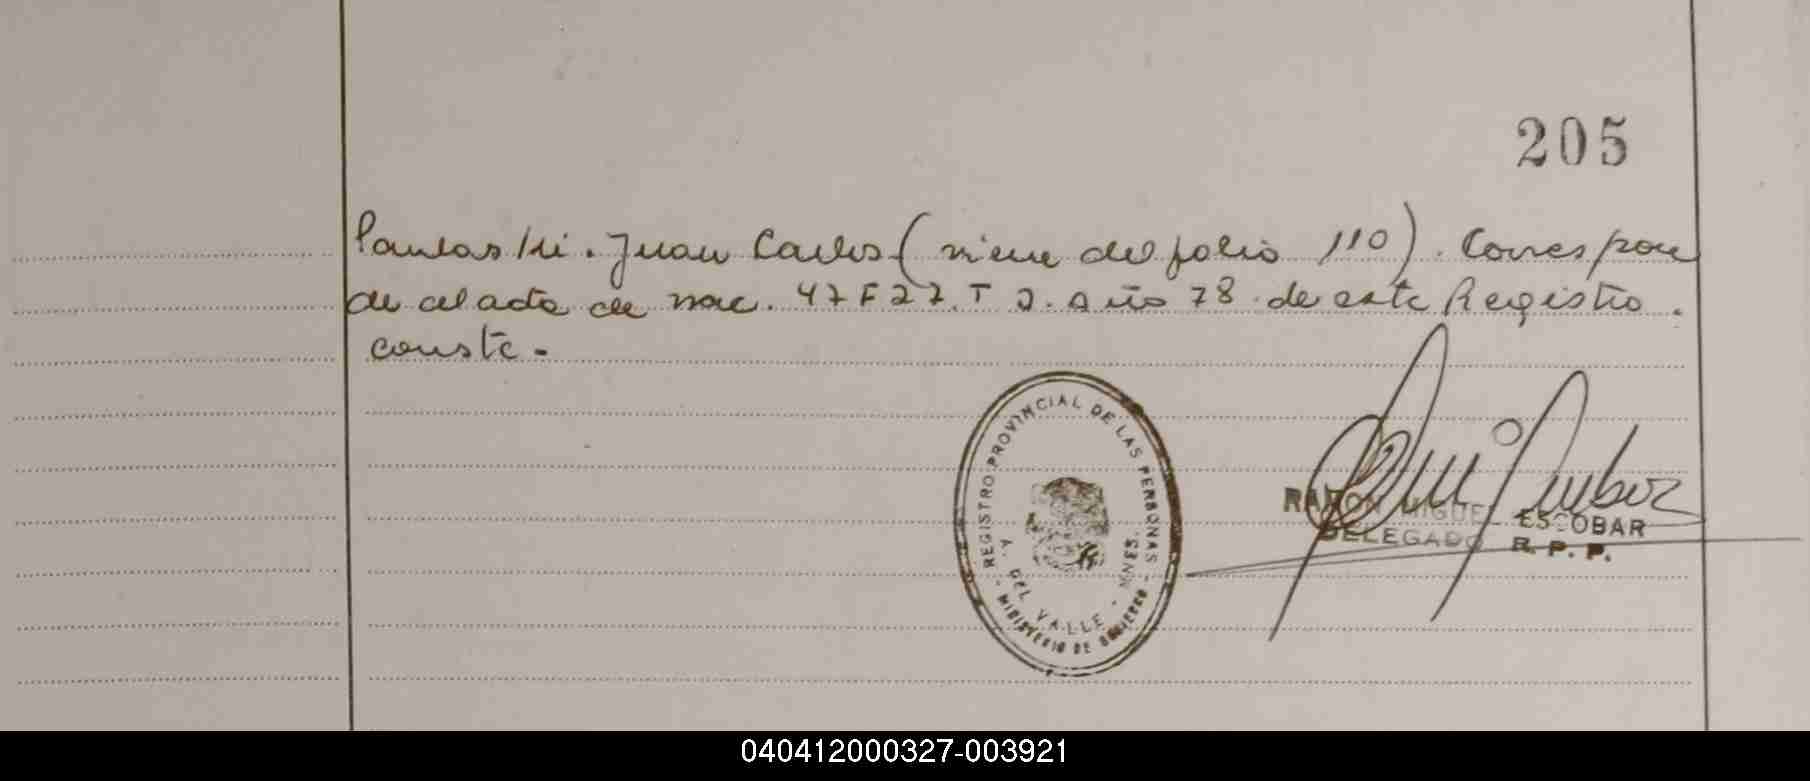 205
Juan Carlos (viene del folio 110). Correspon
de al acta de nac. 47 F 27. T 2. Año 78. de este Registro.
conste.-
REGISTRO PROVINCIAL DE LAS PERSONAS
A. DEL VALLE - MNES.
- MINISTERIO DE GOBIERNO -
RAMON MIGUEL ESCOBAR
DELEGADO R. P. P.
040412000327-003921